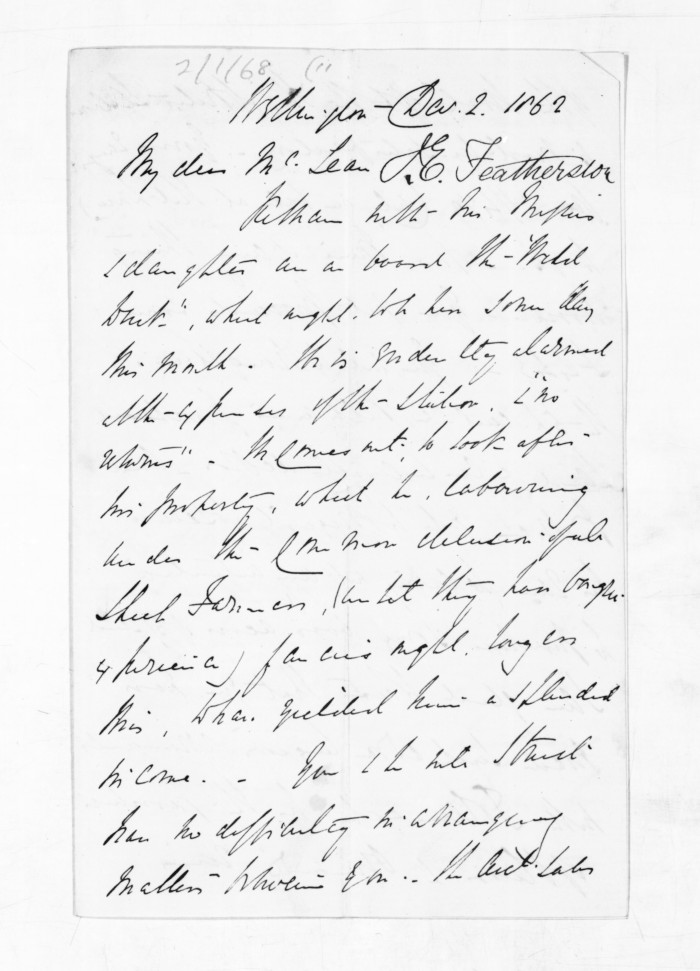 2/1/68 (11
Wellington - Dec. 2. 1862
My dear Mc. Lean J.E. Featherston
with his Missus
& daughter are on board the "Wild
Duck", which ought to be here some day
this month. He is evidently alarmed
at the expenses of the station, & "no
returns". He comes out to look after
his property, which he, labouring
under the common delusion of all
Sheep Farmers, (until they have bought
experience) fancies ought, long ere
this, to have yielded him a splendid
income. - You & he will
have no difficulty in arranging
matters between you. - The